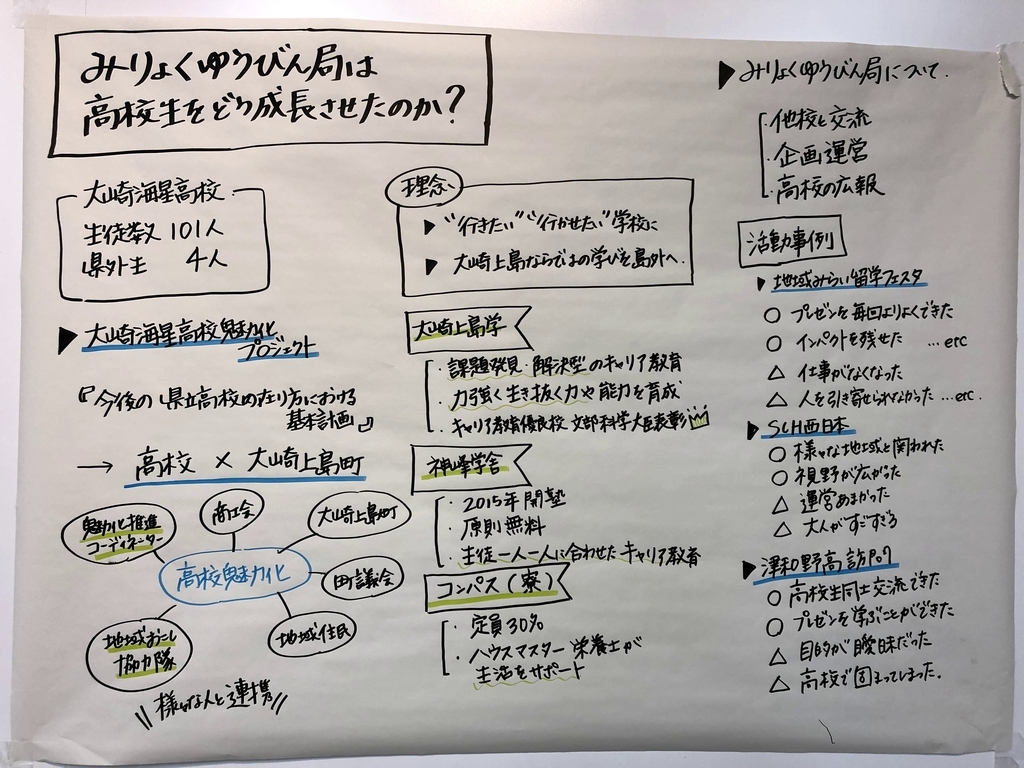 みりょくゆうびん局は
高校生をどう成長させたのか?
大崎海星高校
生徒数 101人
県外生 4人
▶ 大崎海星高校魅力化
プロジェクト
『今後の県立高校の在り方における
基本計画』
→ 高校 × 大崎上島町
魅力化推進
コーディネーター
商工会
大崎上島町
高校魅力化
町議会
地域おこし
協力隊
地域住民
\\ 様々な人と連携 //
理念
▶ "行きたい" "行かせたい" 学校に
▶ 大崎上島ならではの学びを島外へ.
大崎上島学
・課題発見・解決型のキャリア教育
・力強く生き抜く力や能力を育成
・キャリア教育優良校 文部科学大臣表彰
神峰学舎
・2015年開塾
・原則無料
・生徒一人一人に合わせたキャリア教育
コンパス(寮)
・定員30%
・ハウスマスター 栄養士が
生活をサポート
▶ みりょくゆうびん局について.
・他校と交流
・企画運営
・高校の広報
活動事例
▶ 地域みらい留学フェスタ
○ プレゼンを毎回よりよくできた
○ インパクトを残せた …etc
△ 仕事がなくなった
△ 人を引き寄せられなかった …etc.
▶ SCH西日本
○ 様々な地域と関われた
○ 視野が広がった
△ 運営あまかった
△ 大人がすごすぎる
▶ 津和野高訪問
○ 高校生同士交流できた
○ プレゼンを学ぶことができた
△ 目的が曖昧だった
△ 高校で固まってしまった.